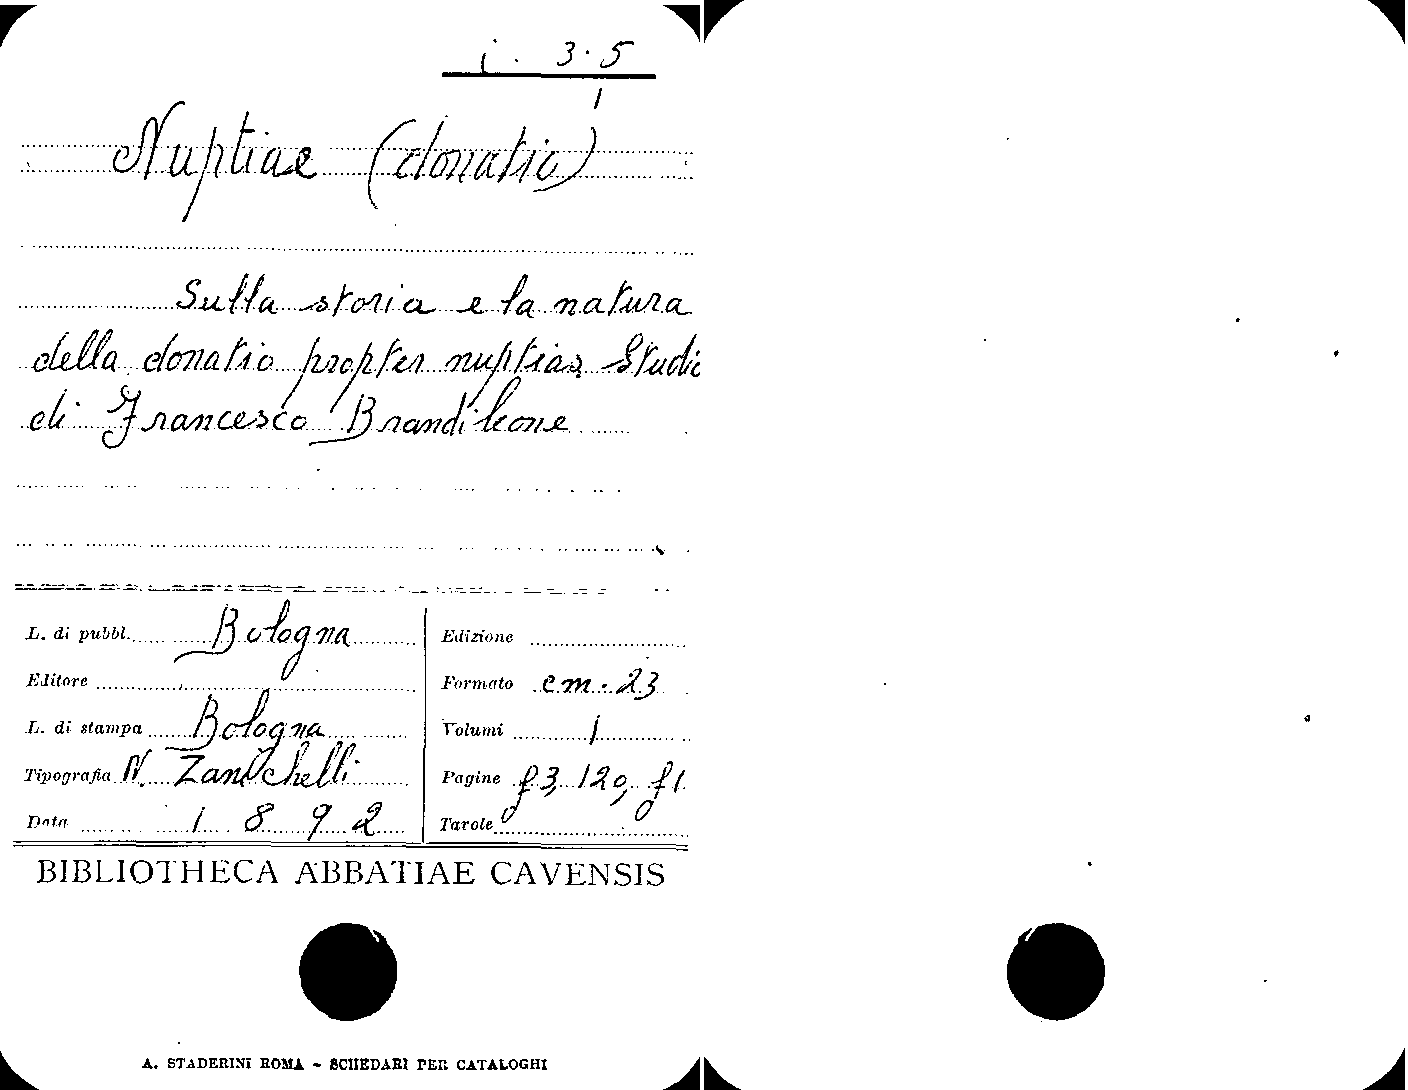 i. 3.5
1
Nuptiae (donatio)
Sulla storia e la natura
della donatio propter nuptias Studio
di Francesco Brandileone
L. di pubbl. Bologna
Editore
L. di stampa Bologna
Tipografia N. Zanichelli
Data 1892
Edizione
Formato cm. 23
Volumi 1
Pagine f3, 120, f1
Tavole
BIBLIOTHECA ABBATIAE CAVENSIS
A. STADERINI ROMA - SCHEDARI PER CATALOGHI